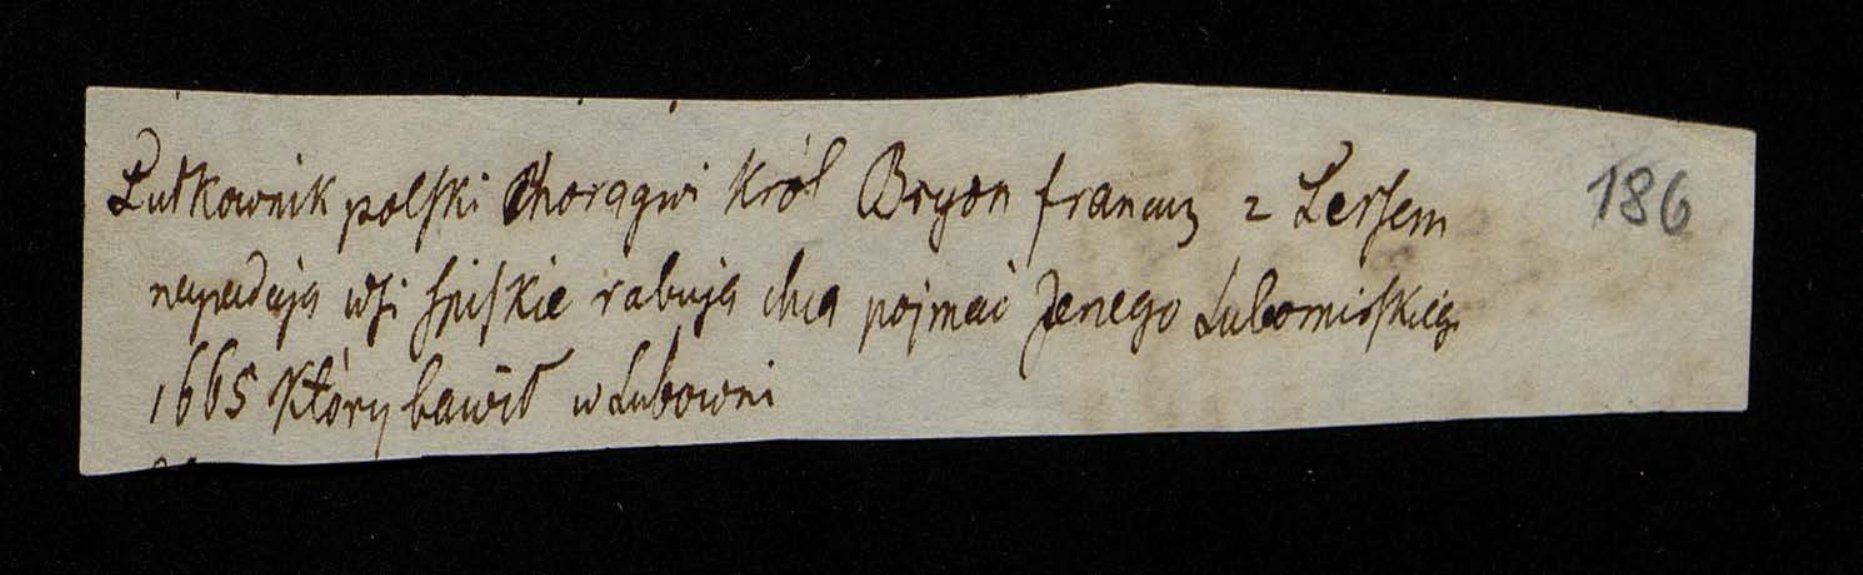 Pułkownik polski Chorągwi Król Bryon francuz z Lersem 186
napadają wsi spiskie rabują chcą pojmać Jerzego Lubomirskiego
1665 który bawił w Lubowni